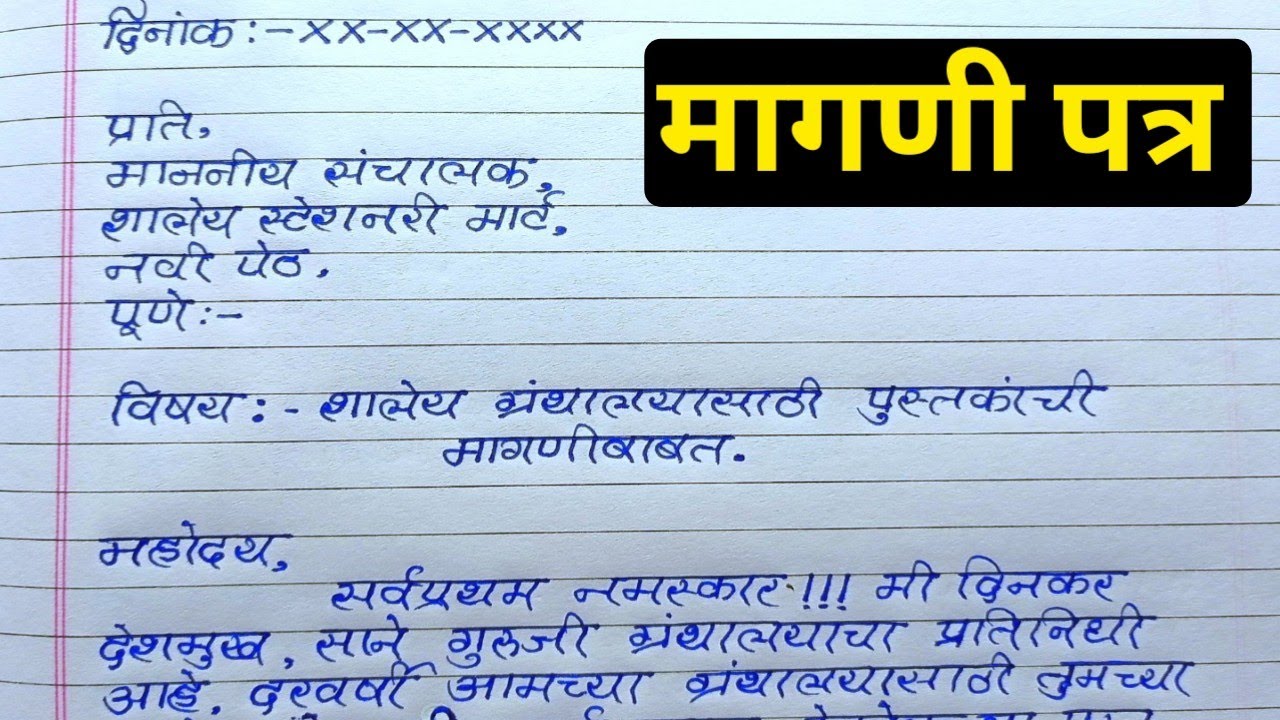 दिनांक :- xx-xx-xxxx
मागणी पत्र
प्रति,
माननीय संचालक,
शालेय स्टेशनरी मार्ट,
नवी पेठ.
पूणे :-
विषय :- शालेय ग्रंथालयासाठी पुस्तकांची
मागणीबाबत.
महोदय,
सर्वप्रथम नमस्कार !!! मी दिनकर
देशमुख, साने गुरुजी ग्रंथालयाचा प्रतिनिधी
आहे. दरवर्षी आमच्या ग्रंथालयासाठी तुमच्या